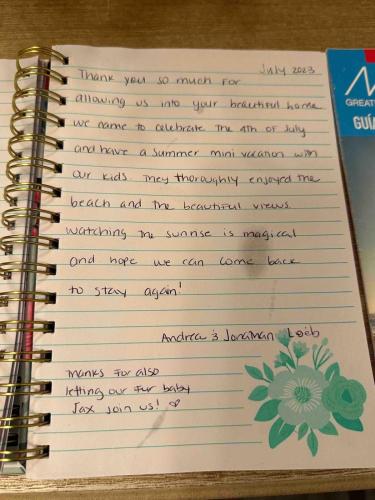 July 2023
Thank you so much for
allowing us into your beautiful home
we came to celebrate the 4th of July
and have a summer mini vacation with
our kids. They thoroughly enjoyed the
beach and the beautiful views.
watching the sunrise is magical
and hope we can come back
to stay again!
Andrea & Jonathan Loeb
Thanks for also
letting our fur baby
Jax join us! ♡
M
GREAT
GUÍA